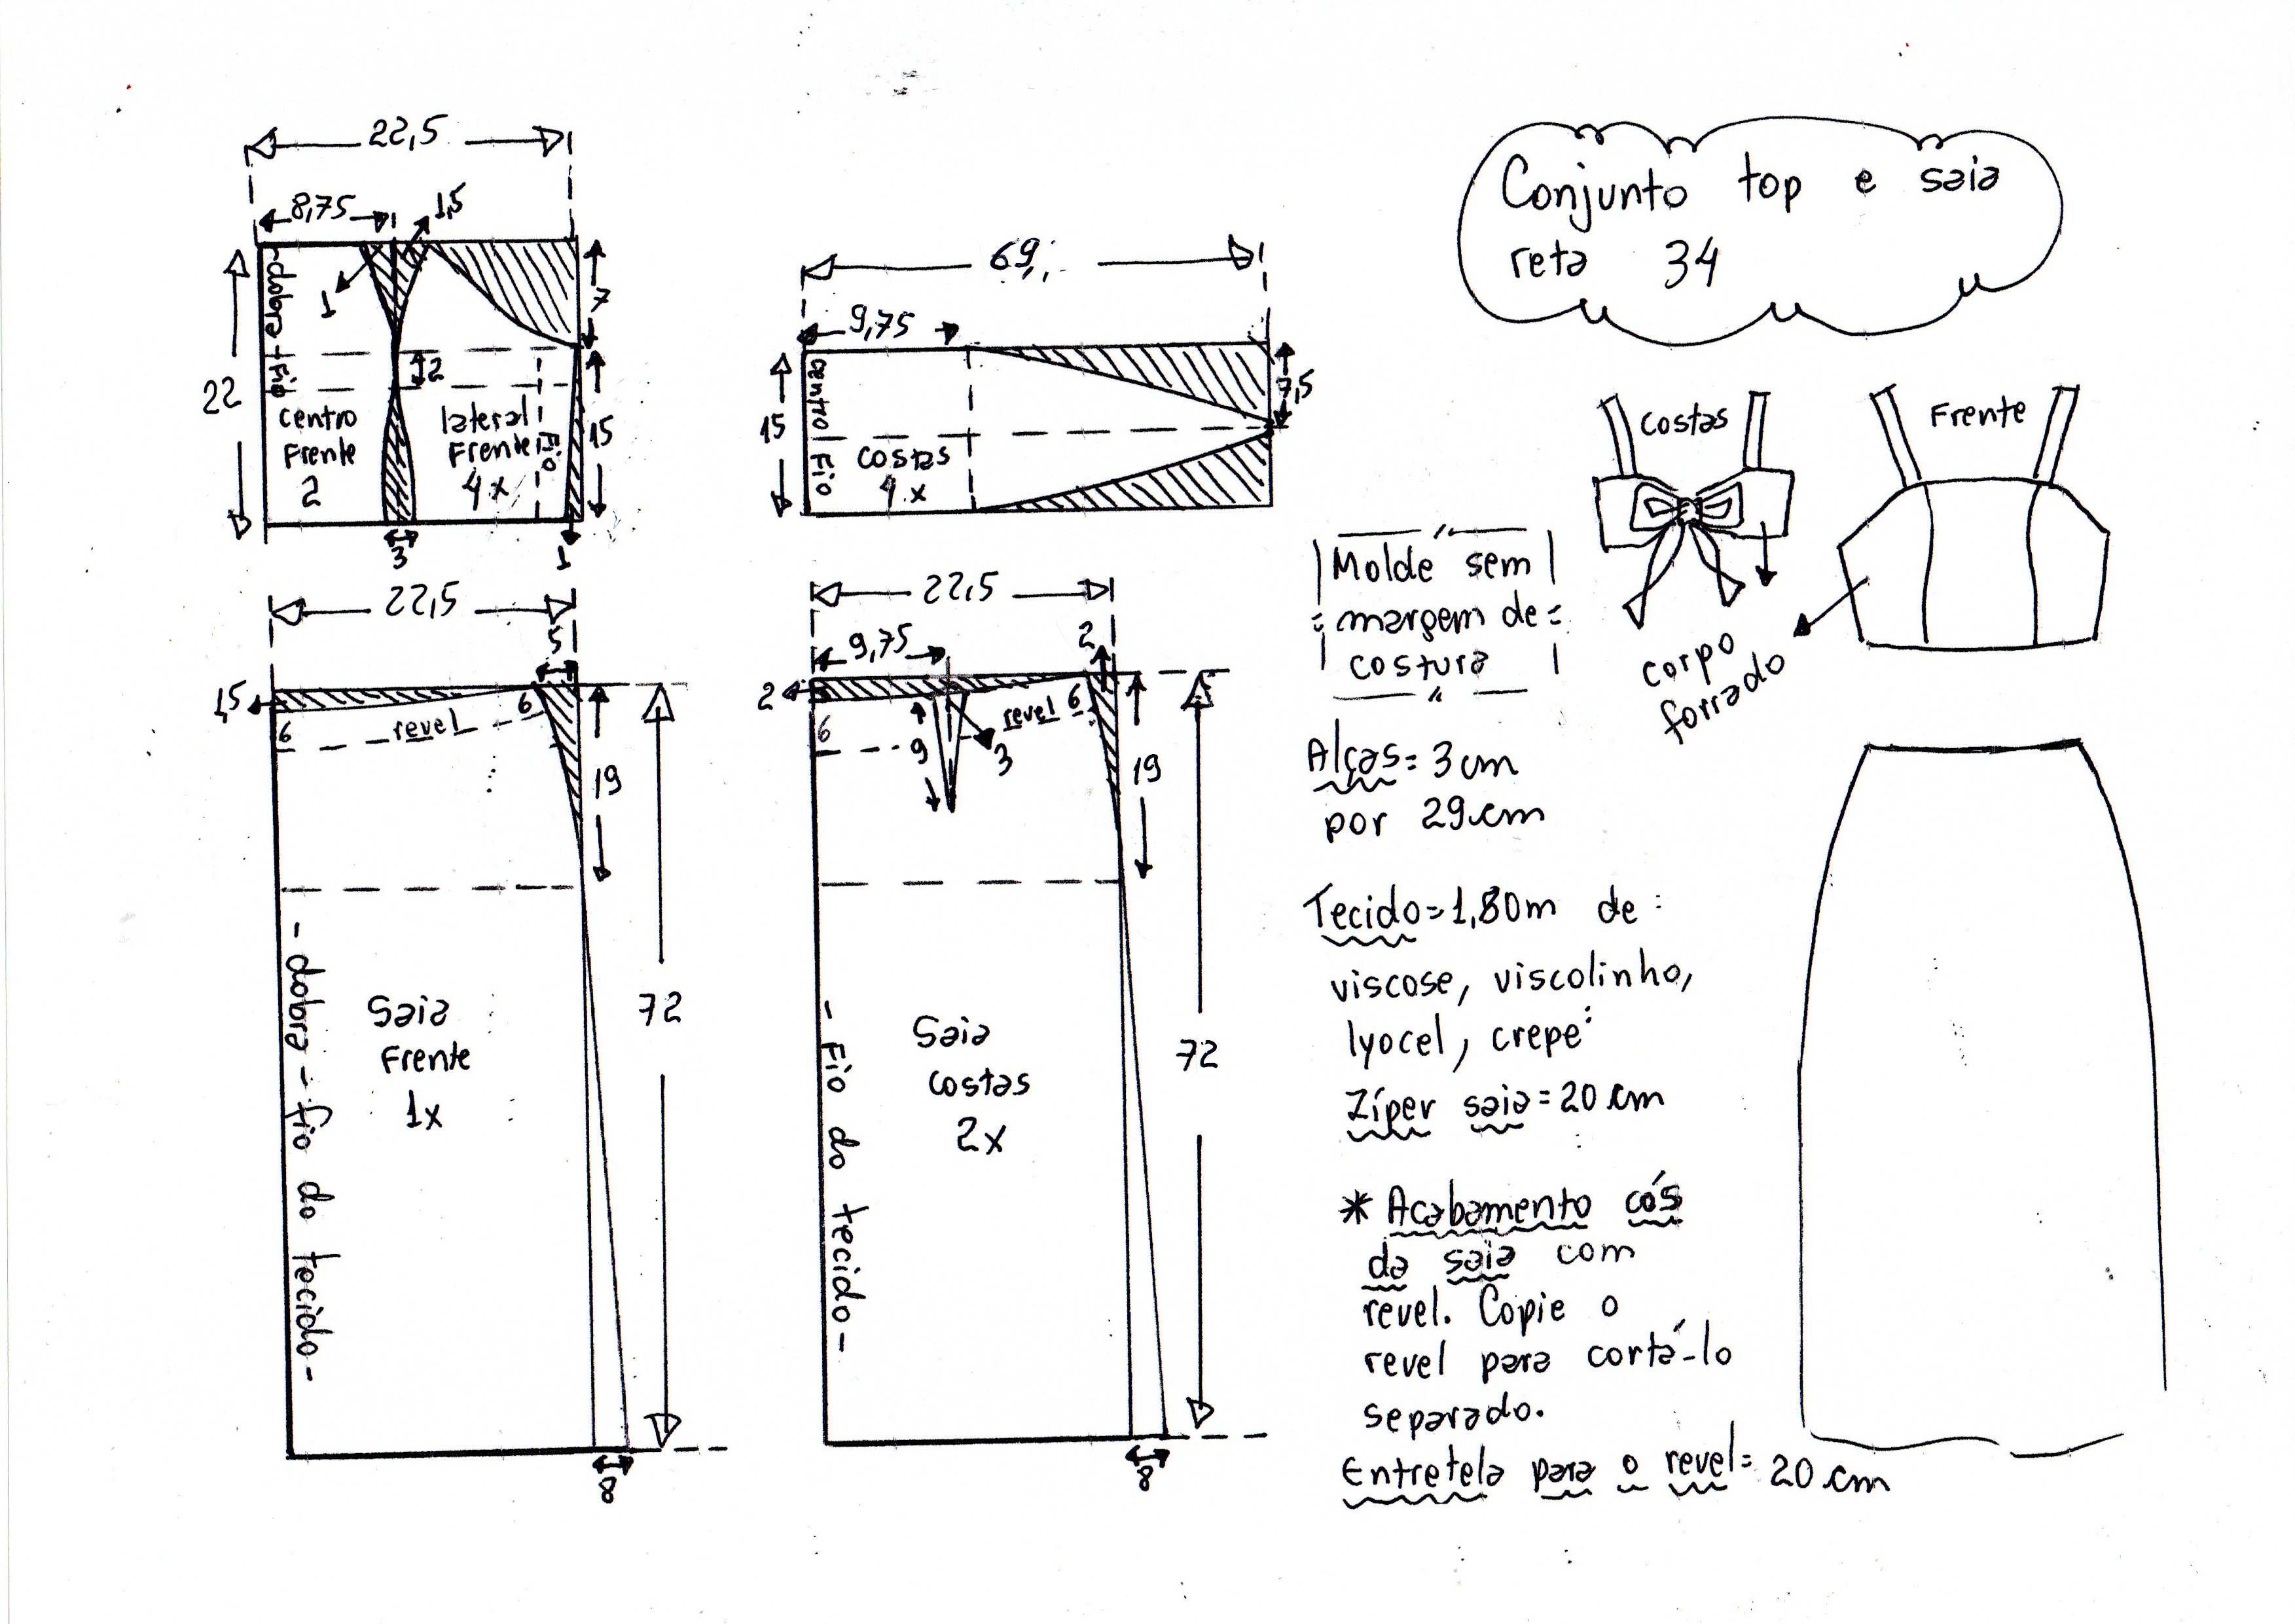 Conjunto top e saia
reta 34
22,5
8,75
1,5
1
7
22
dobra - fio
2
centro
Frente
2
lateral
Frente
4x
Fio
15
3
1
69
9,75
7,5
15
centro
Fio
costas
4x
Costas
Frente
corpo
forrado
Molde sem
margem de
costura
22,5
5
1,5
6
revel
6
19
72
- dobra - fio do tecido -
Saia
Frente
1x
8
22,5
9,75
2
2
6
9
3
revel 6
19
72
- Fio do tecido -
Saia
costas
2x
8
Alças = 3 cm
por 29 cm
Tecido = 1,80m de
viscose, viscolinho,
lyocel, crepe
Zíper saia = 20 cm
* Acabamento cós
da saia com
revel. Copie o
revel para cortá-lo
separado.
Entretela para o revel = 20 cm